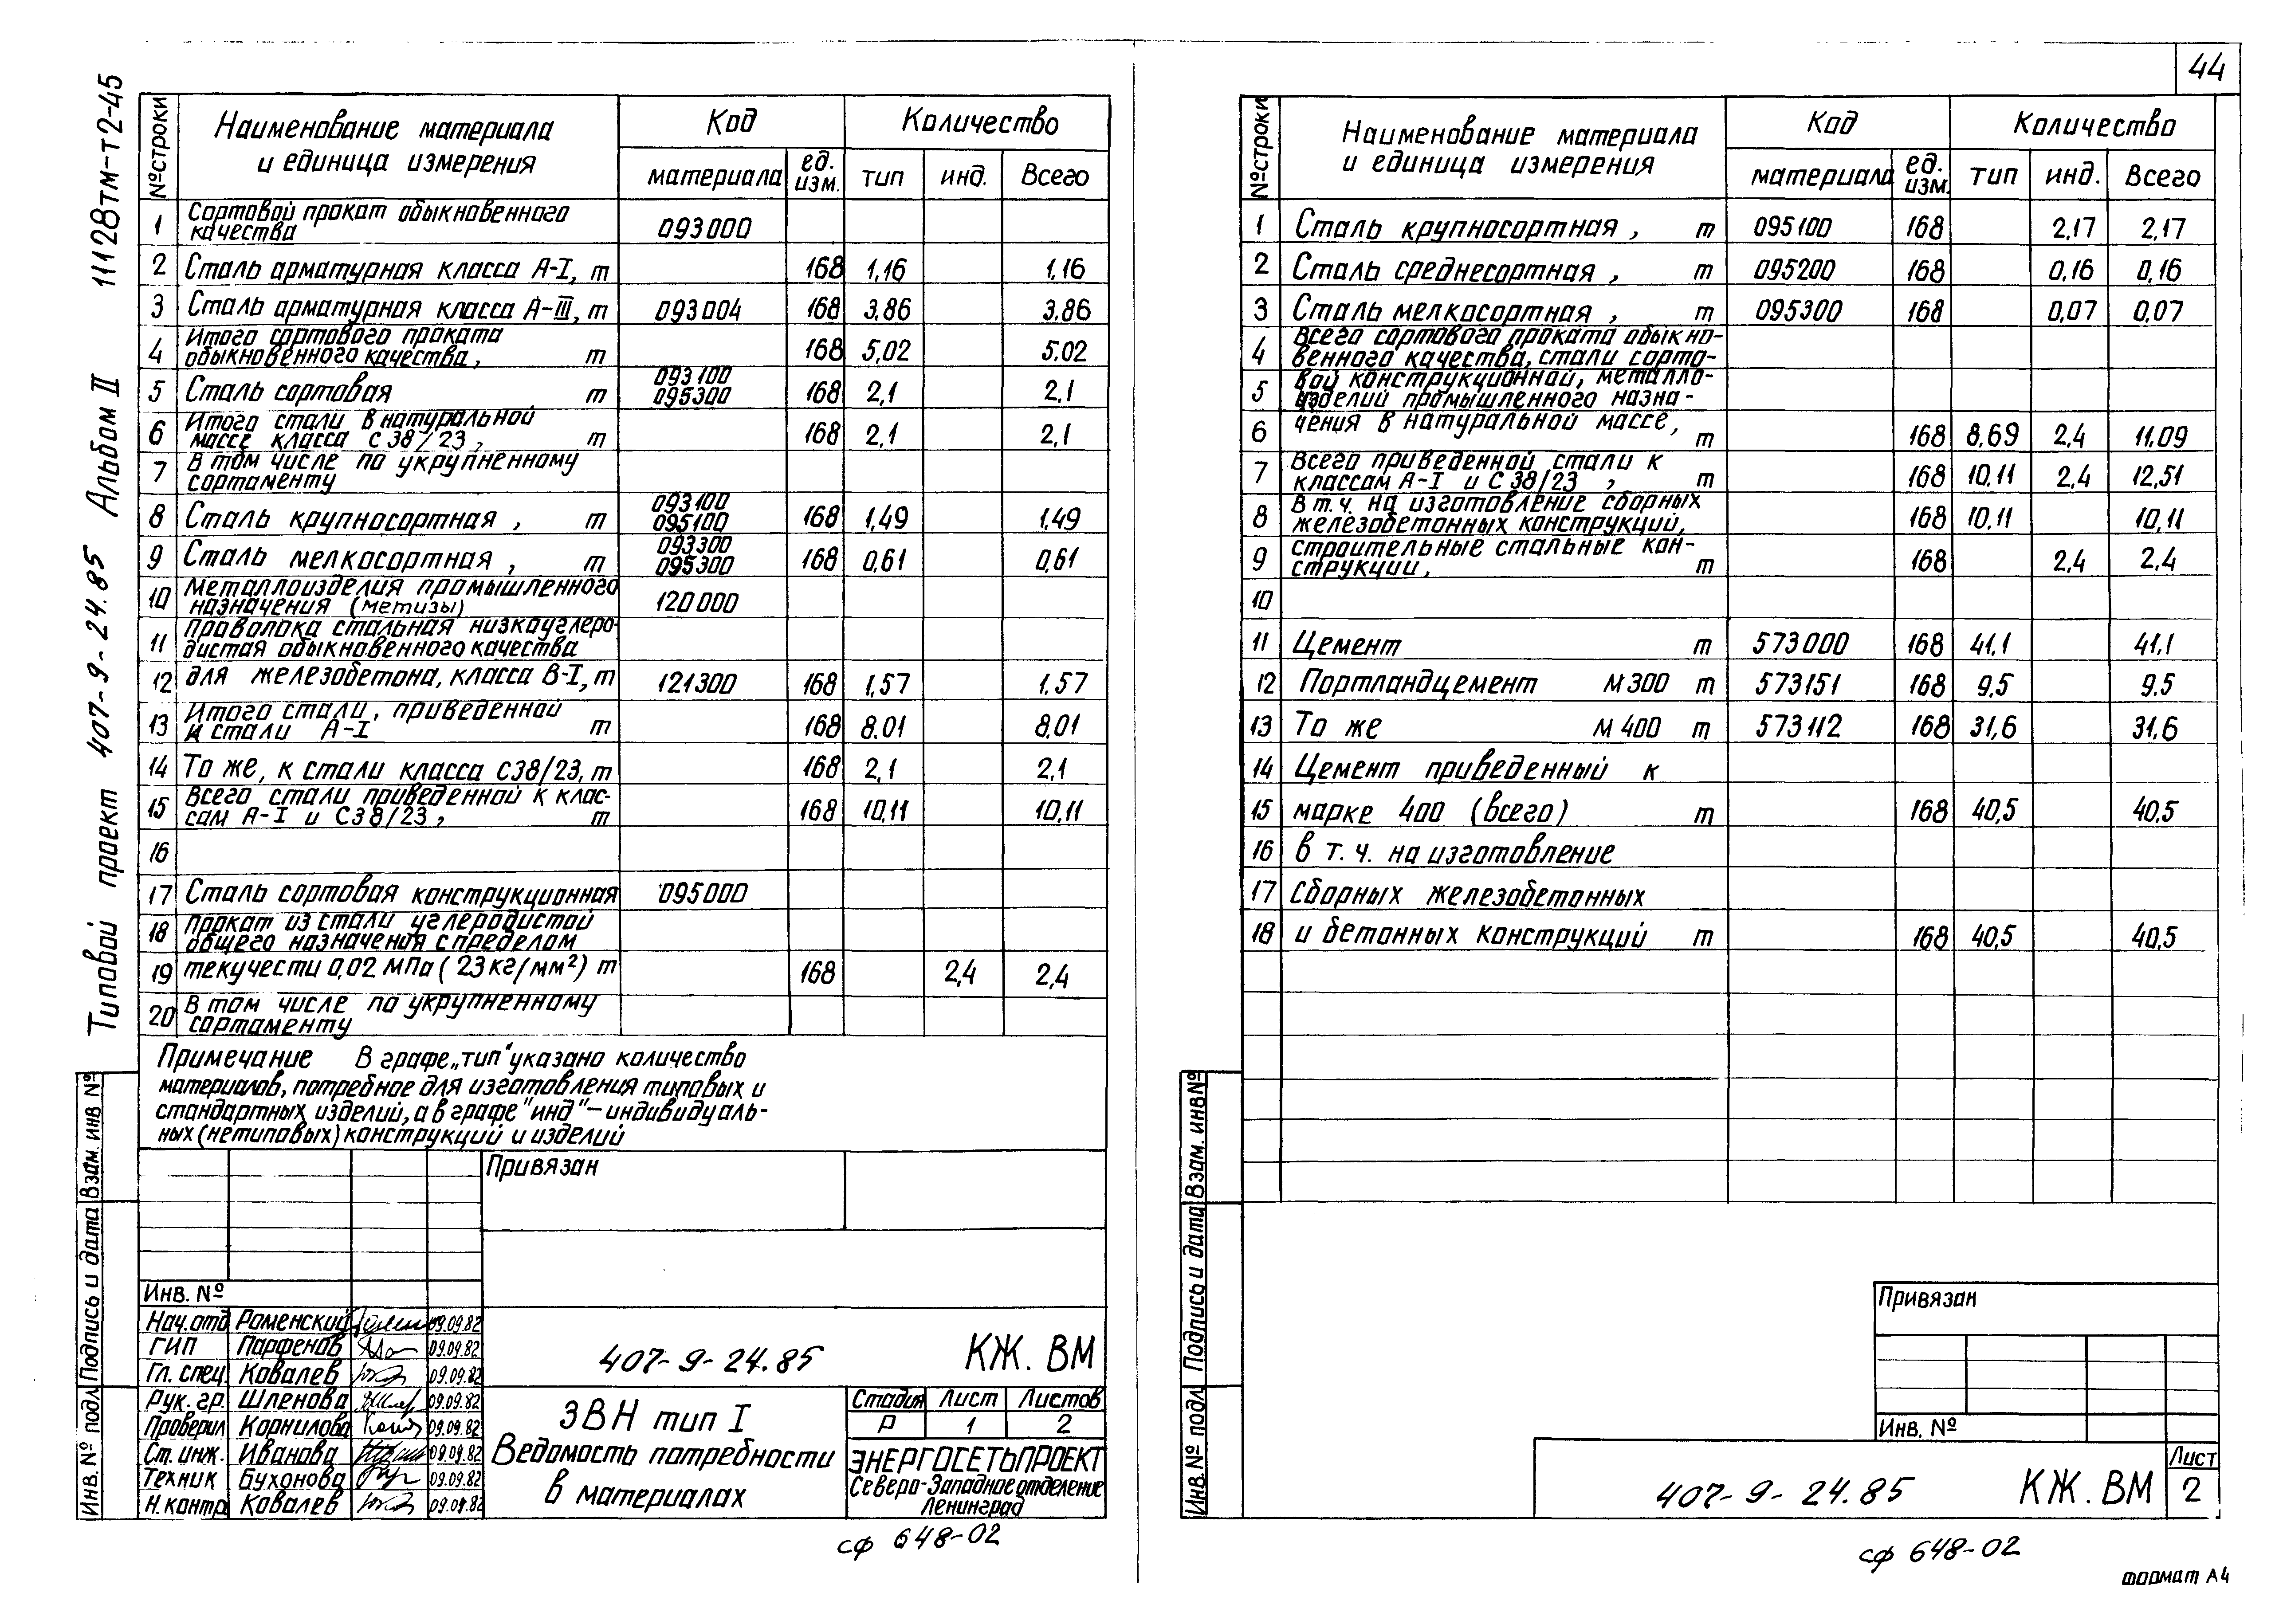 44
Типовой проект 407-9-24.85 Альбом II 11128тм-т2-45
№ строки Наименование материала и единица измерения Код Количество
материала ед. изм. тип инд. Всего
1 Сортовой прокат обыкновенного качества 093000
2 Сталь арматурная класса А-I, т 168 1,16 1,16
3 Сталь арматурная класса А-III, т 093004 168 3,86 3,86
4 Итого сортового проката обыкновенного качества, т 168 5,02 5,02
5 Сталь сортовая т 093100 095300 168 2,1 2,1
6 Итого стали в натуральной массе класса С38/23, т 168 2,1 2,1
7 В том числе по укрупненному сортаменту
8 Сталь крупносортная, т 093100 095100 168 1,49 1,49
9 Сталь мелкосортная, т 093300 095300 168 0,61 0,61
10 Металлоизделия промышленного назначения (метизы) 120000
11 Проволока стальная низкоуглеродистая обыкновенного качества
12 для железобетона, класса В-I, т 121300 168 1,57 1,57
13 Итого стали, приведенной к стали А-I т 168 8,01 8,01
14 То же, к стали класса С38/23, т 168 2,1 2,1
15 Всего стали приведенной к классам А-I и С38/23, т 168 10,11 10,11
16
17 Сталь сортовая конструкционная 095000
18 Прокат из стали углеродистой общего назначения с пределом
19 текучести 0,02 МПа (23 кг/мм²) т 168 2,4 2,4
20 В том числе по укрупненному сортаменту
Примечание В графе „тип" указано количество
материалов, потребное для изготовления типовых и
стандартных изделий, а в графе "инд" – индивидуаль-
ных (нетиповых) конструкций и изделий
Привязан
Инв. №
Нач. отд Роменский 09.09.82
ГИП Парфенов 09.09.82
Гл. спец. Ковалев 09.09.82
Рук. гр. Шленова 09.09.82
Проверил Корнилова 09.09.82
Ст. инж. Иванова 09.09.82
Техник Бухонова 09.09.82
Н. контр. Ковалев 09.09.82
407-9-24.85 КЖ. ВМ
ЗВН тип I
Ведомость потребности
в материалах
Стадия Лист Листов
Р 1 2
ЭНЕРГОСЕТЬПРОЕКТ
Северо-Западное отделение
Ленинград
Инв. № подл. Подпись и дата Взам. инв №
сф 648-02
№ строки Наименование материала и единица измерения Код Количество
материала ед. изм. тип инд. Всего
1 Сталь крупносортная, т 095100 168 2,17 2,17
2 Сталь среднесортная, т 095200 168 0,16 0,16
3 Сталь мелкосортная, т 095300 168 0,07 0,07
4 Всего сортового проката обыкновенного качества, стали сорто-
5 вой конструкционной, металлоизделий промышленного назна-
6 чения в натуральной массе, т 168 8,69 2,4 11,09
7 Всего приведенной стали к классам А-I и С38/23, т 168 10,11 2,4 12,51
8 В т. ч. на изготовление сборных железобетонных конструкций, 168 10,11 10,11
9 строительные стальные конструкции, т 168 2,4 2,4
10
11 Цемент т 573000 168 41,1 41,1
12 Портландцемент М300 т 573151 168 9,5 9,5
13 То же М 400 т 573112 168 31,6 31,6
14 Цемент приведенный к
15 марке 400 (всего) т 168 40,5 40,5
16 в т. ч. на изготовление
17 сборных железобетонных
18 и бетонных конструкций т 168 40,5 40,5
Привязан
Инв. №
407-9-24.85 КЖ. ВМ
Лист
2
Инв. № подл. Подпись и дата Взам. инв №
сф 648-02
Формат А4